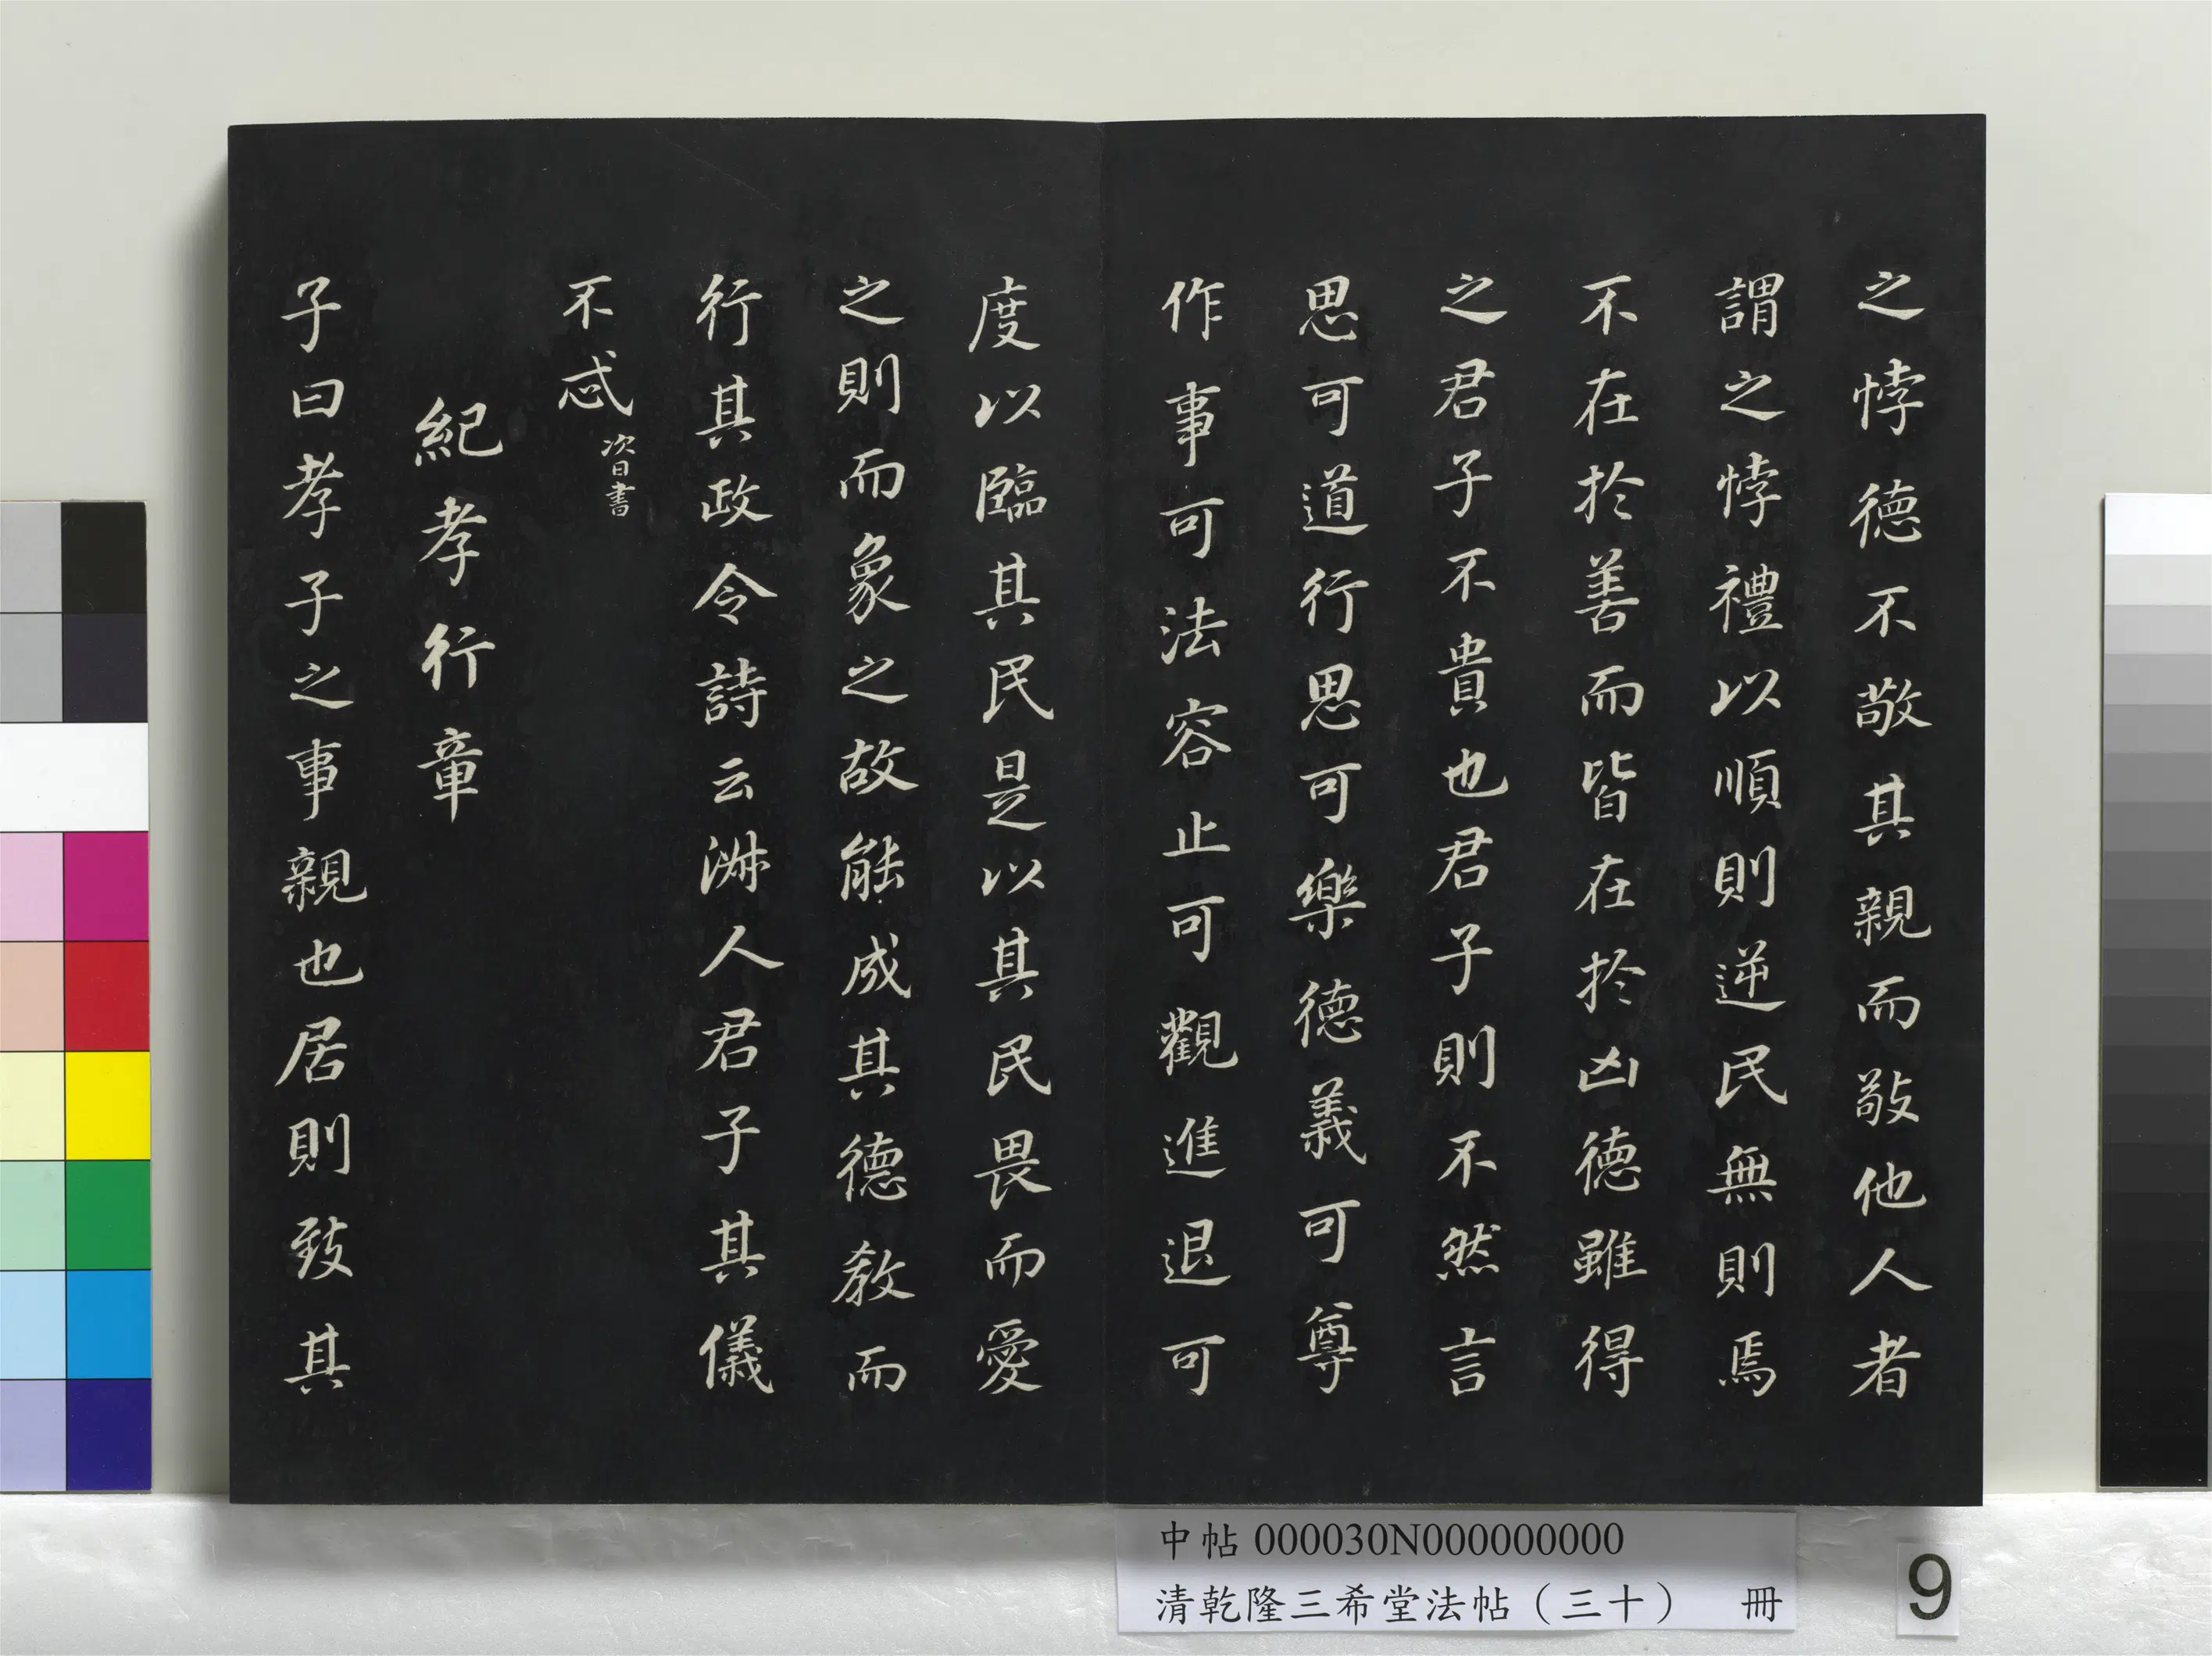 之悖德不敬其親而敬他人者
謂之悖禮以順則逆民無則焉
不在於善而皆在於凶德雖得
之君子不貴也君子則不然言
思可道行思可樂德義可尊
作事可法容止可觀進退可
度以臨其民是以其民畏而愛
之則而象之故能成其德教而
行其政令詩云淑人君子其儀
不忒
次日書
紀孝行章
子曰孝子之事親也居則致其
中帖 000030N000000000
清乾隆三希堂法帖（三十） 冊
9